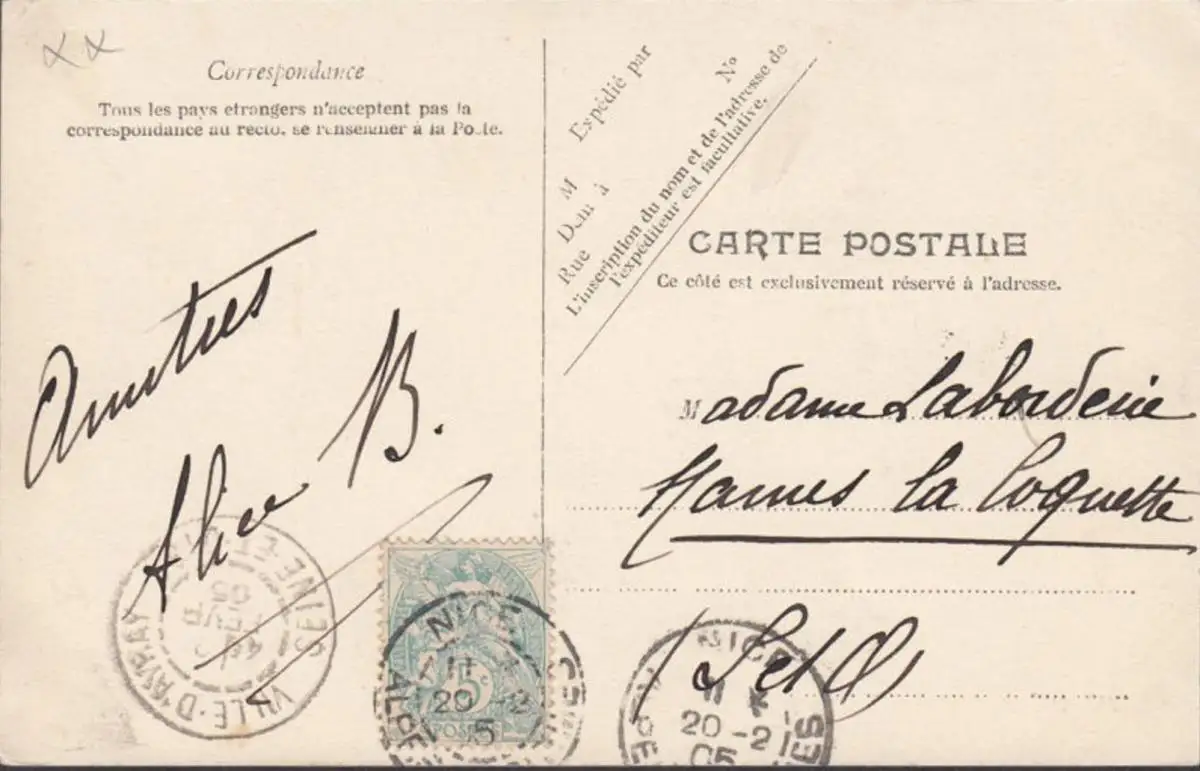 Correspondance
Tous les pays etrangers n'acceptent pas la
correspondance au recto, se renseigner à la Poste.
Expédié par
M
Dem à
Rue
N°
L'inscription du nom et de l'adresse de
l'expéditeur est facultative.
CARTE POSTALE
Ce côté est exclusivement réservé à l'adresse.
Amitiés
Alice B.
Madame Laborderie
Marnes la Coquette
(S et O)
VILLE-D'AVRAY
SEINE-ET-OISE
FEVR
05
5c
POSTES
NICE
20-2
5
NICE
20-2
05